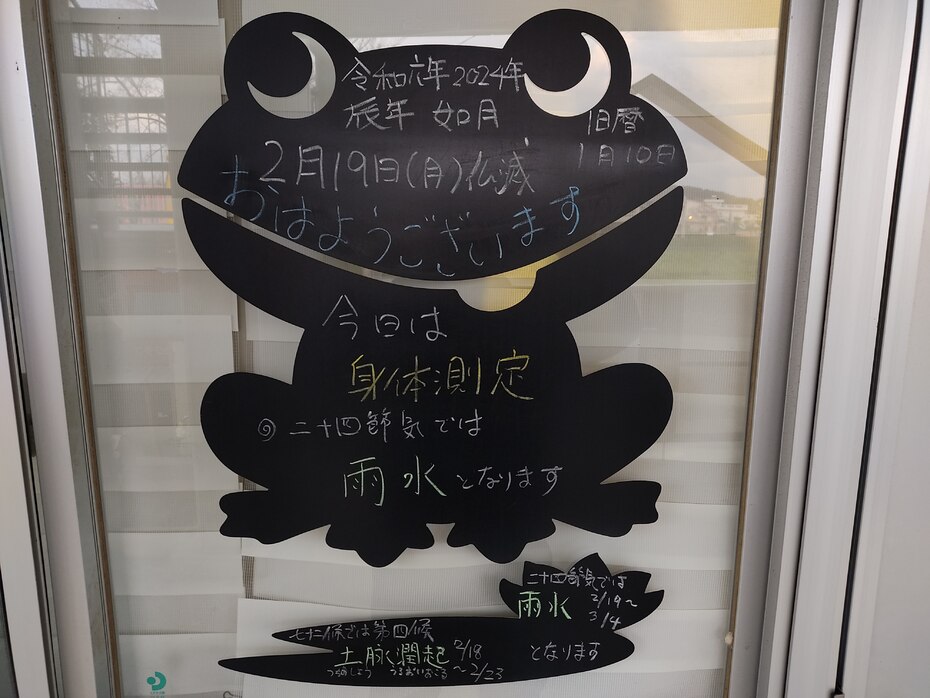 令和六年2024年
辰年 如月
旧暦
1月10日
2月19日(月)仏滅
おはようございます
今日は
身体測定
◎二十四節気では
雨水となります
二十四節気では
雨水 2/19〜
3/4
となります
七十二候では第四候
土脉潤起 2/18
〜2/23
つちのしょう うるおいおこる